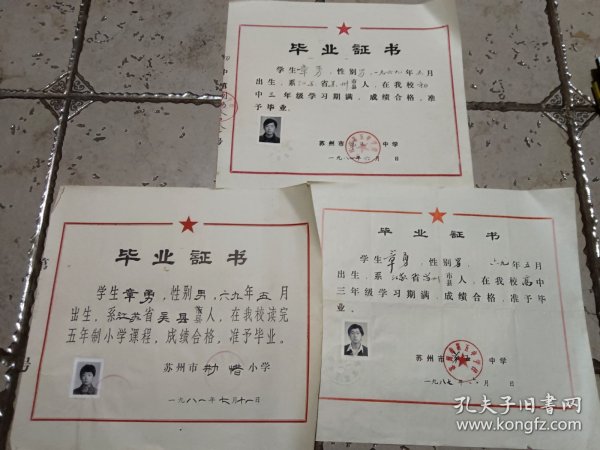 毕业証书
学生章勇，性别男，一九六九年五月
出生，系江苏省苏州市县人，在我校初
中三年级学习期满，成绩合格，准
予毕业。
苏州市 中学
一九八 年六月 日
毕业証书
学生章勇，性别男，六九年五月
出生，系江苏省吴县 人，在我校读完
五年制小学课程，成绩合格，准予毕业。
苏州市 小学
一九八一年七月十一日
毕业証书
学生章勇，性别男，六九年五月
出生，系江苏省苏州市县人，在我校高中
三年级学习期满，成绩合格，准予毕
业。
苏州市 中学
一九八七年 月 日
孔夫子旧书网
www.kongfz.com